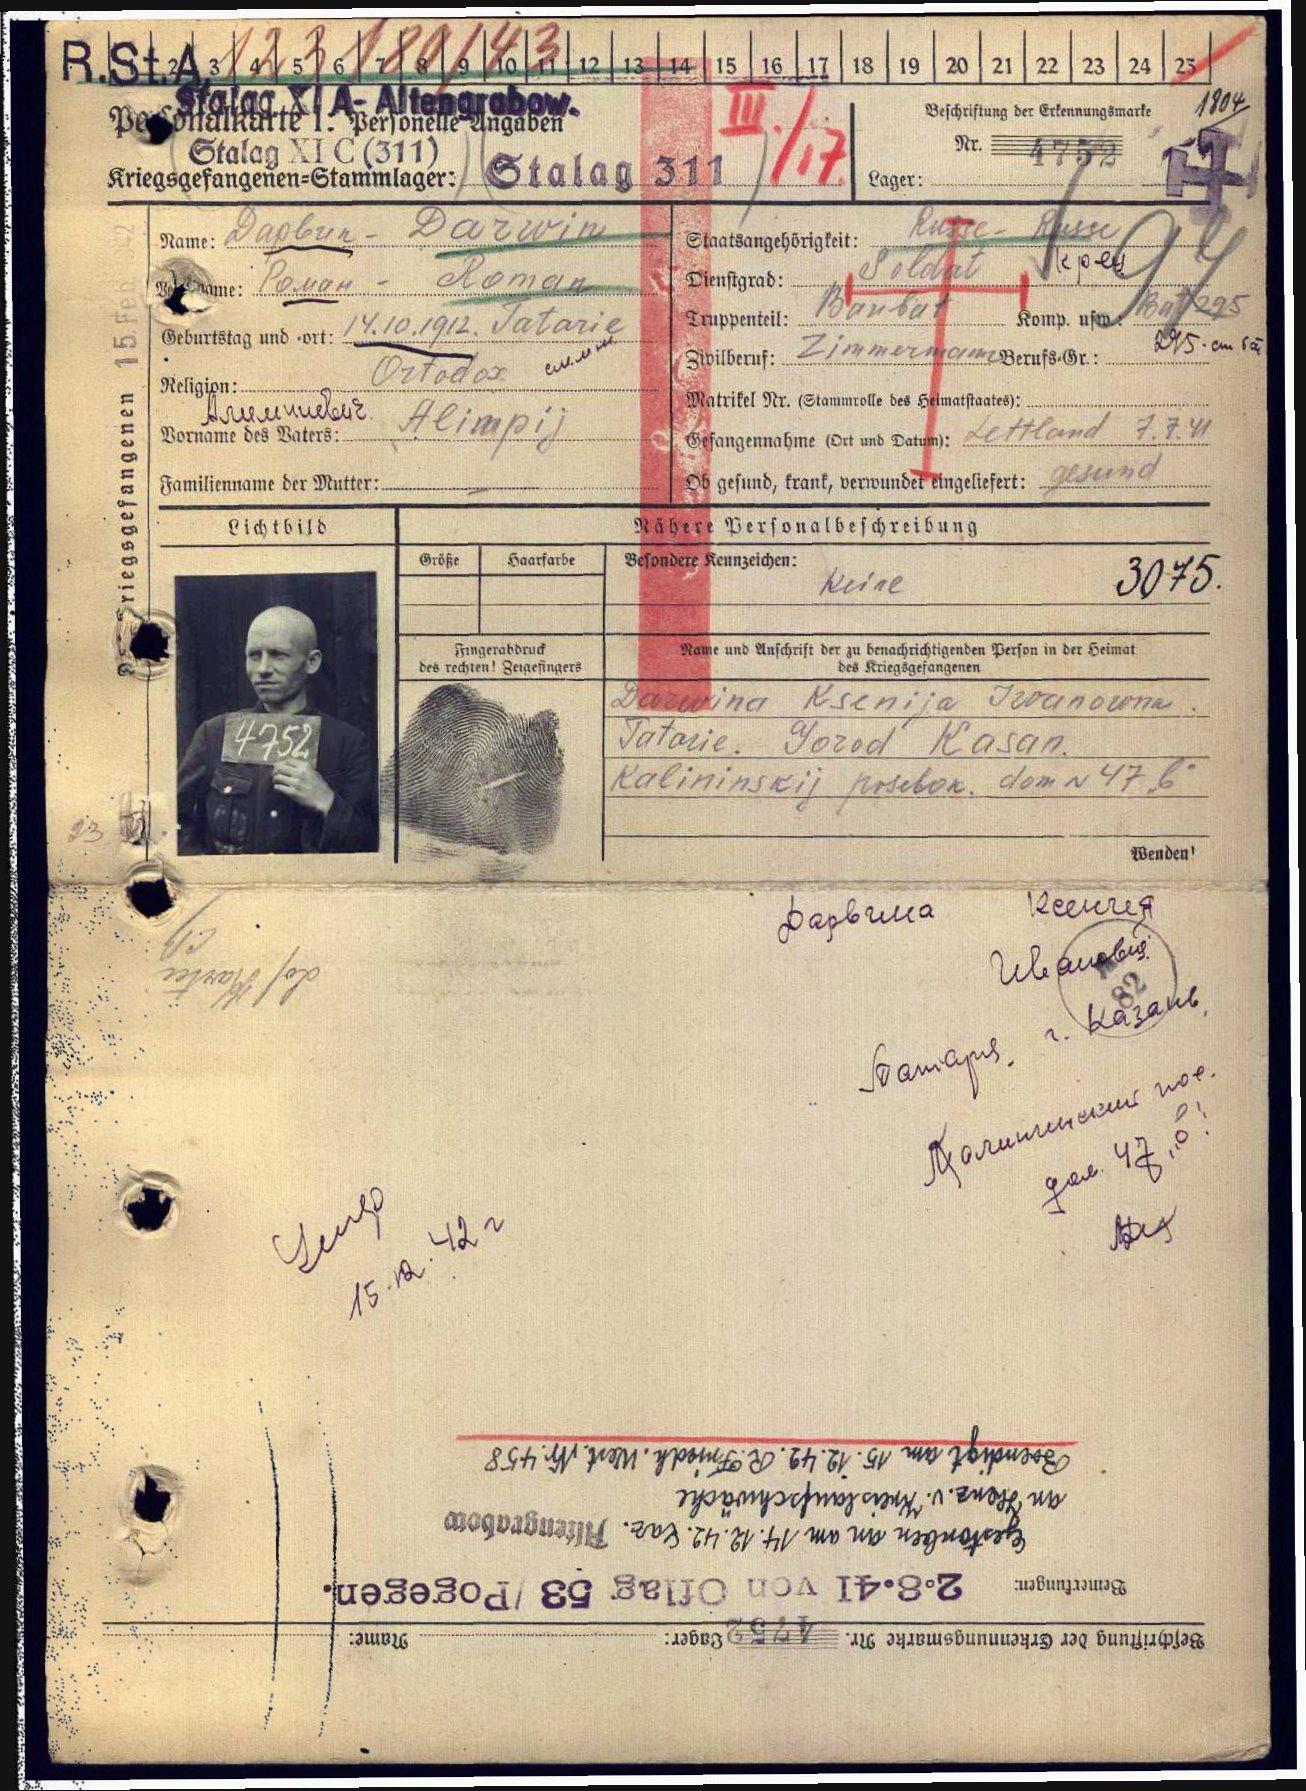 R.St.A. 123 180/43
2 3 4 5 6 7 8 9 10 11 12 13 14 15 16 17 18 19 20 21 22 23 24 25
Stalag XI A- Altengrabow.
Personalkarte I: Personelle Angaben
Stalag XI C (311)
Kriegsgefangenen-Stammlager: Stalag 311
III./17.
Beschriftung der Erkennungsmarke
1804
Nr. 4752
Lager:
94
15. Feb.
Kriegsgefangenen
Name: Дарвин - Darwin
Vorname: Роман - Roman
Geburtstag und -ort: 14.10.1912. Tatarie
Religion: Ortodox
Алимпиевич
Vorname des Vaters: Alimpij
Familienname der Mutter: —
Staatsangehörigkeit: Russe - Russe
Dienstgrad: Soldat
Truppenteil: Baubat Komp. usw.: Bat 295
Zivilberuf: Zimmermann Berufs-Gr.:
295
Matrikel Nr. (Stammrolle des Heimatstaates):
Gefangennahme (Ort und Datum): Lettland 7.7.41
Ob gesund, krank, verwundet eingeliefert: gesund
Lichtbild
Nähere Personalbeschreibung
Größe Haarfarbe Besondere Kennzeichen:
Keine 3075.
Fingerabdruck
des rechten! Zeigefingers
Name und Anschrift der zu benachrichtigenden Person in der Heimat
des Kriegsgefangenen
4752
Darwina Ksenija Iwanowna.
Tatarie. Gorod Kasan.
Kalininskij poselok. dom N 47 „b"
23
Wenden!
Дарвина Ксения
Ивановна
82
Татария. г. Казань,
Калининский пос.
дом. 47 „б"
15.12.42 г
Beendigt am 15.12.42. R. Friedh. Wert. Nr. 458
an Herz. u. Kreislaufschwäche
Gestorben an am 14.12.42. Laz. Altengrabow
Bemerkungen: 2.8.41 von Oflag 53/Pogegen.
Beschriftung der Erkennungsmarke Nr. 4752 Lager: Name: